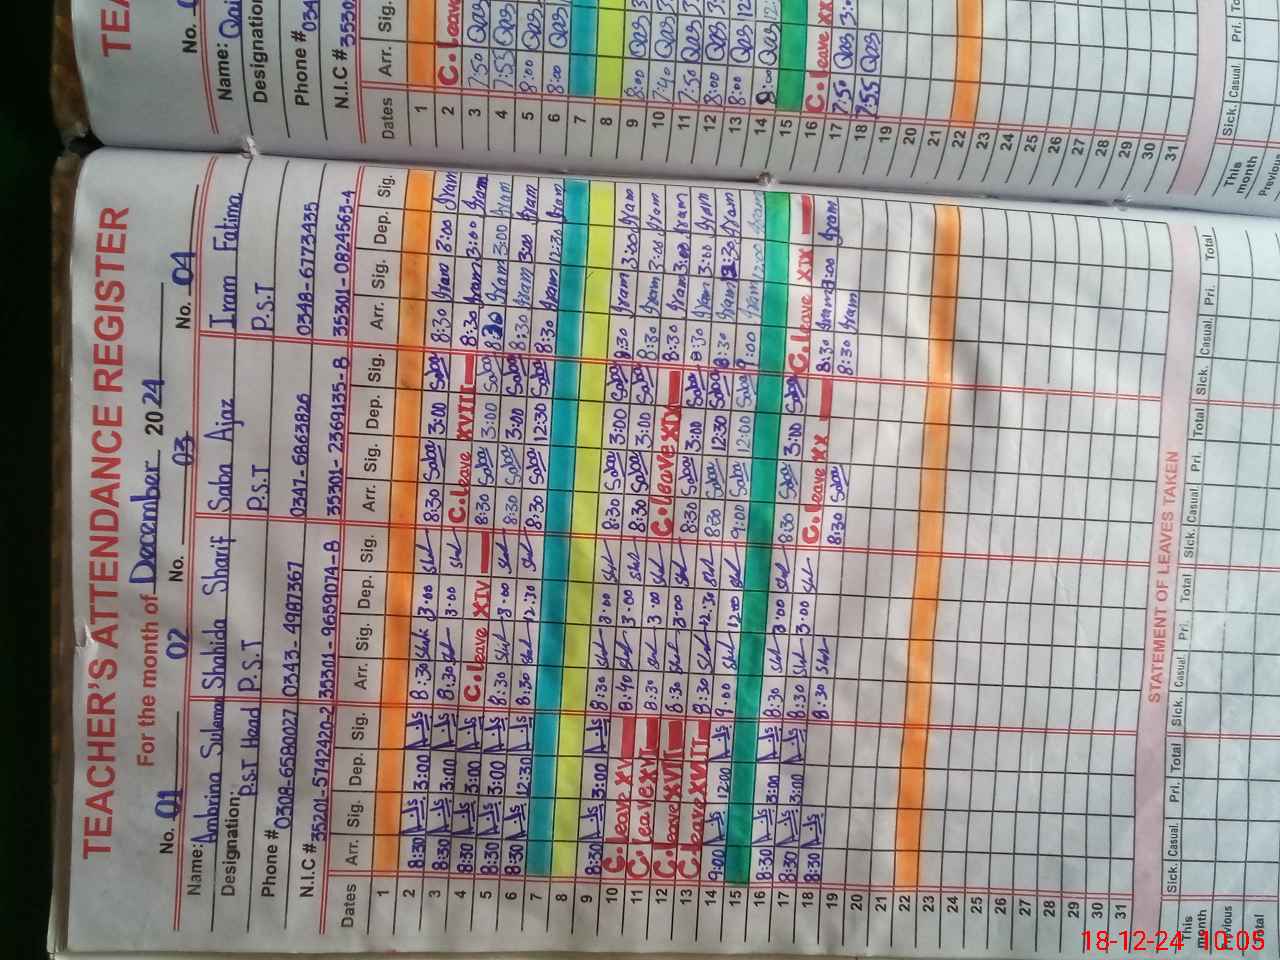 TEACHER'S ATTENDANCE REGISTER
For the month of December 2024
No. 01 No. 02 No. 03 No. 04
Name: Ambrina Shahida Sharif Saba Ajaz Iram Fatima
Designation: P.S.T Head P.S.T P.S.T P.S.T
Phone # 0308-6580027 0343-4987367 0347-6863826 0348-6773435
N.I.C # 35201-5742420-2 35301-9659074-8 35301-2369135-8 35301-0824563-4
Dates Arr. Sig. Dep. Sig. Arr. Sig. Dep. Sig. Arr. Sig. Dep. Sig. Arr. Sig. Dep. Sig.
1
2 8:30 3:00 8:30 3:00 8:30 Saba 3:00 Saba 8:30 Iram 3:00 Iram
3 8:30 3:00 8:30 3:00 C.leave XVIII 8:30 Iram 3:00 Iram
4 8:30 3:00 C.leave XIV 8:30 Saba 3:00 Saba 8:30 Iram 3:00 Iram
5 8:30 3:00 8:30 3:00 8:30 Saba 3:00 Saba 8:30 Iram 3:00 Iram
6 8:30 12:30 8:30 12:30 8:30 Saba 12:30 Saba 8:30 Iram 12:30 Iram
7
8
9 8:30 3:00 8:30 3:00 8:30 Saba 3:00 Saba 8:30 Iram 3:00 Iram
10 C.leave XV 8:40 3:00 8:30 Saba 3:00 Saba 8:30 Iram 3:00 Iram
11 C.leave XVI 8:30 3:00 C.leave XIX 8:30 Iram 3:00 Iram
12 C.leave XVII 8:30 3:00 8:30 Saba 3:00 Saba 8:30 Iram 3:00 Iram
13 C.leave XVIII 8:30 12:30 8:30 Saba 12:30 Saba 8:30 Iram 12:30 Iram
14 9:00 12:00 9:00 12:00 9:00 Saba 12:00 Saba 9:00 Iram 12:00 Iram
15
16 8:30 3:00 8:30 3:00 8:30 Saba 3:00 Saba C.leave XIX
17 8:30 3:00 8:30 3:00 C.leave XX 8:30 Iram 3:00 Iram
18 8:30 8:30 8:30 Saba 8:30 Iram
19
20
21
22
23
24
25
26
27
28
29
30
31
STATEMENT OF LEAVES TAKEN
Sick. Casual. Pri. Total Sick. Casual. Pri. Total Sick. Casual. Pri. Total Sick. Casual. Pri. Total
This month
Previous
Total
No.
Name:
Designation
Phone #
N.I.C #
Dates Arr. Sig.
1
2 C.leave
3 7:50
4 7:55
5 8:00
6 8:00
7
8
9 8:00
10 7:40
11 7:50
12 8:00
13 8:00
14
15
16 C.leave XX
17 7:50
18 7:55
19
20
21
22
23
24
25
26
27
28
29
30
31
Sick. Casual. Pri.
This month
Previous
18-12-24 10:05